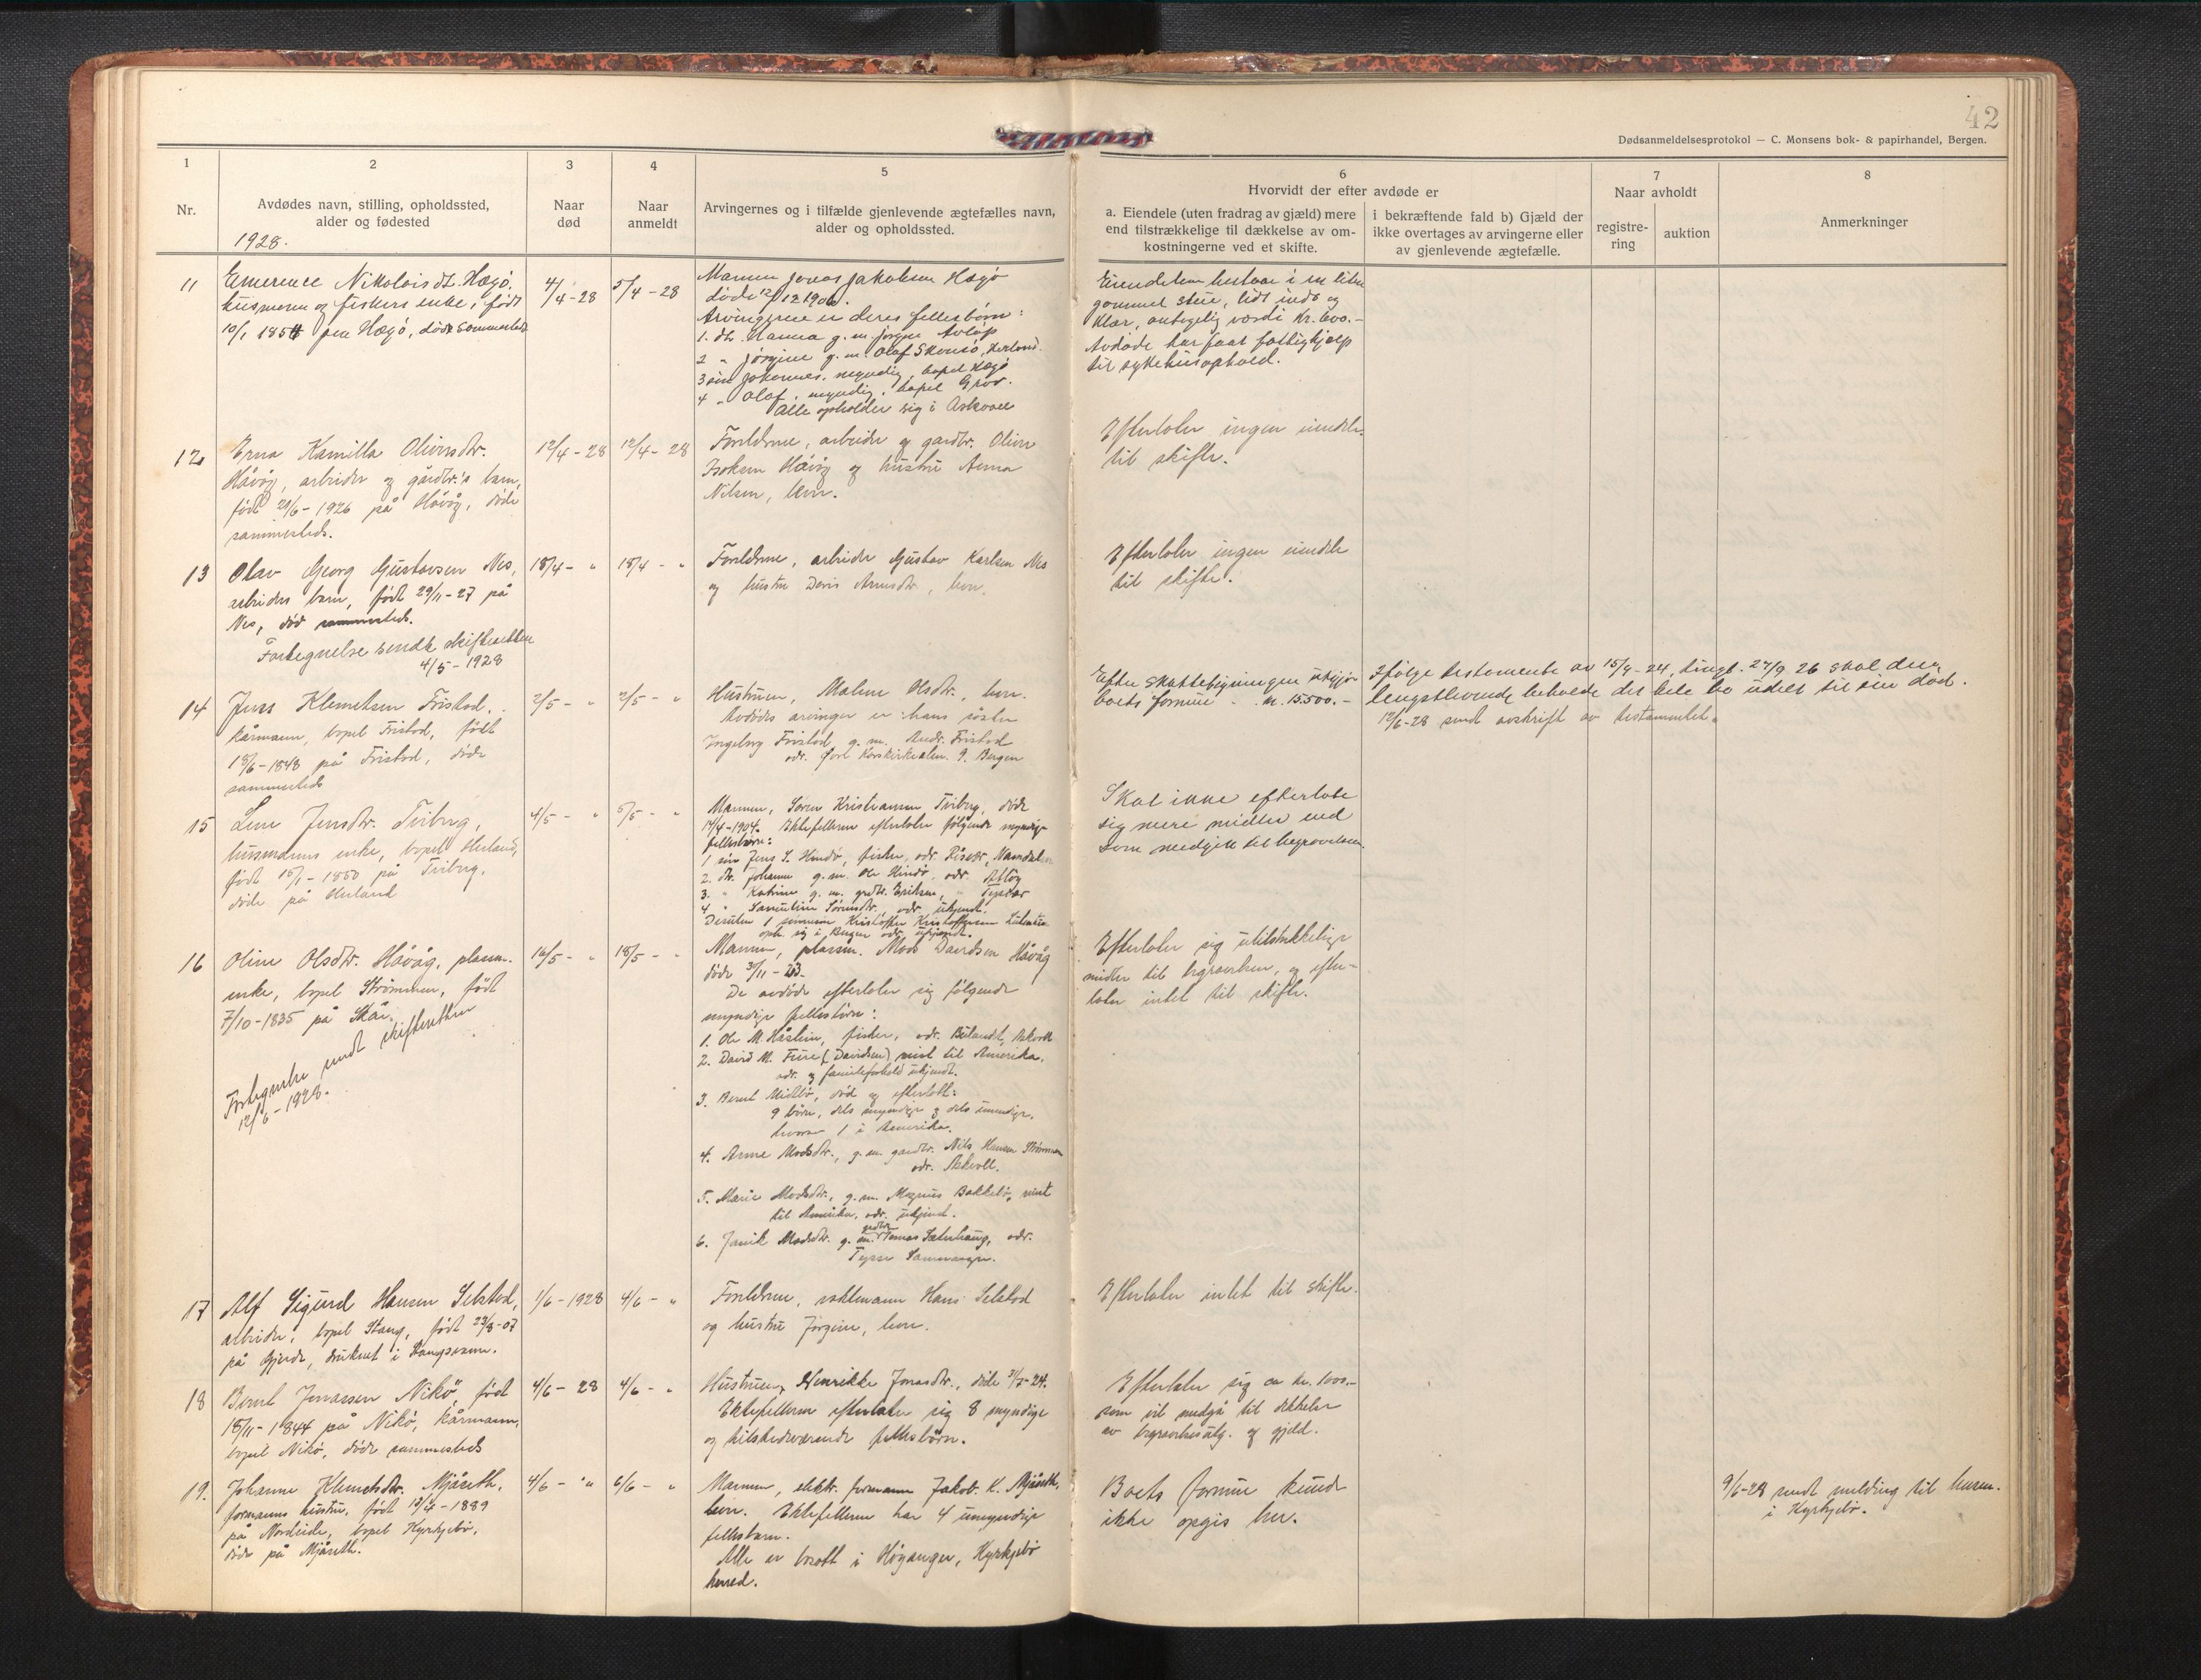 42
Dødsanmeldelsesprotokol — C. Monsens bok- & papirhandel, Bergen.
1
2
3
4
5
6
7
8
Nr.
Avdødes navn, stilling, opholdssted,
alder og fødested
Naar
død
Naar
anmeldt
Arvingernes og i tilfælde gjenlevende ægtefælles navn,
alder og opholdssted.
Hvorvidt der efter avdøde er
a. Eiendele (uten fradrag av gjæld) mere
end tilstrækkelige til dækkelse av om-
kostningerne ved et skifte.
i bekræftende fald b) Gjæld der
ikke overtages av arvingerne eller
av gjenlevende ægtefælle.
Naar avholdt
registre-
ring
auktion
Anmerkninger
1928.
11
Emerence Nikolaisdt. Hægø,
husmoren og fiskers enke, født
10/1 1854 paa Hægø, døde sammesteds
4/4-28
5/4-28
Mannen Jonas Jakobsen Hægø
døde 12/12 1906.
Arvingerne er deres fellesbørn:
1. dtr. Hanna g. m. Jørgen Atløp
2 " Jørgine g. m. Olaf Skorsø, Herland.
3 søn Johannes, myndig, bopel Hægø
4 " Olaf, myndig, bopel Grov.
Alle opholder sig i Askvoll
Eiendelene bestaar i en liten
gammel stue, lidt indb og
klær, antagelig værdi kr. 600.-
Avdøde har faat fattighjelp
til sykehusophold.
12
Erna Kamilla Oliversdtr.
Håvåg, arbeider og gårdbr.'s barn,
født 20/6-1926 på Håvåg, døde
sammesteds.
12/4-28
12/4-28
Foreldrene, arbeider og gardbr. Oliver
Isaksen Håvåg og hustru Anna
Nilsen, lever.
Efterlater ingen eiendeler
til skifte.
13
Olav Georg Gustavsen Nes,
arbeiders barn, født 29/11-27 på
Nes, død sammesteds.
Fortegnelse sendt skifteretten
4/5-1928
18/4- "
18/4- "
Foreldrene, arbeider Gustav Karlsen Nes
og hustru Doris Arnesdtr., lever.
Efterlater ingen eiendele
til skifte.
14
Jens Klemetsen Fristad,
kårmann, bopel Fristad, født
18/6-1848 på Fristad, døde
sammesteds
2/5- "
2/5- "
Hustruen, Malene Olsdtr., lever.
Avdødes arvinger er hans søster
Ingeborg Fristad g. m. Andr. Fristad
adr. Korskirkealm. 9. Bergen
Efter skatteligningen utgjør
boets formue kr. 15.500.-
Ifølge testamente av 15/9-24, tingl. 27/9 26 skal den
lengstlevende beholde det hele bo udelt til sin død.
12/6-28 sendt avskrift av testamentet.
15
Lene Jensdtr. Tviberg,
husmanns enke, bopel Herland,
født 15/1-1850 på Tviberg,
døde på Herland
4/5- "
5/5- "
Mannen, Søren Kristiansen Tviberg, døde
14/4-1904. Ektefellerne efterlater følgende myndige
fellesbørn:
1 søn Jens S. Hindø, fisker, adr. Namdalen
2. dtr. Johanne g. m. Ole Hindø, adr. Atløy
3. " Katrine g. m. grdbr. Eriksen,
4 " Samueline Sørensdtr. adr. ukjendt.
Desuten 1 Kristoffer Kristoffersen
oph. sig i Bergen adr. ukjendt.
Skal ikke efterlate
sig mere midler end
som medgik til begravelsen.
16
Oline Olsdtr. Håvåg, plassm.
enke, bopel Strømmen, født
7/10-1835 på Skår.
Fortegnelse sendt skifteretten
12/6-1928.
16/5- "
18/5- "
Mannen, plassm. Mads Davidsen Håvåg
døde 3/11-23.
De avdøde efterlater sig følgende
myndige fellesbørn:
1. Ole M. Håstein, fisker, adr. Bulandet, Askvoll
2. David M. Fure (Davidsen) reist til Amerika.
adr. og familieforhold ukjendt.
3. Bernt Midtbø, død og efterlatt:
9 børn, dels myndige og dels umyndige,
hvorav 1 i Amerika.
4. Anne Madsdtr., g. m. gardbr. Nils Hansen Strømmen
adr. Askvoll.
5. Marie Madsdtr., g. m. Magnus Bakkebø, reist
til Amerika, adr. ukjend.
6. Madsdtr. g. m. grdbr. Tomas Sæterhaug, adr.
Efterlater sig utilstrekkelige
midler til begravelsen, og efter-
later intet til skifte.
17
Alf Sigurd Hansen Selstad,
arbeider, bopel Stang, født 23/8-07
på Gjerde, druknet i Stangsvann.
1/6-1928
4/6- "
Foreldrene, Hans Selstad
og hustru Jørgine, lever.
Efterlater intet til skifte.
18
Bernt Jonassen Nikø, født
18/11-1844 på Nikø, kårmann,
bopel Nikø, døde sammesteds
4/6-28
4/6- "
Hustruen, Henrikke Jonasdtr., døde 3/5-24.
Ektefellerne efterlater sig 8 myndige
og tilstedeværende fellesbørn.
Efterlater sig ca. kr. 1000.-
som vil medgå til dekkelse
av begravelsesutg. og gjeld.
19.
Johanne Klemetsdtr. Mjåseth,
formanns hustru, født 13/4-1889
på Nordeide, bopel Kyrkjebø,
døde på Mjåseth.
4/6- "
6/6- "
Mannen, elektr. formann Jakob K. Mjåseth,
lever. Ektefellerne har 4 umyndige
fellesbarn.
Alle er bosatt i Høyanger, Kyrkjebø
herred.
Boets formue kunde
ikke opgis her.
9/6-28 sendt melding til lensm.
i Kyrkjebø.